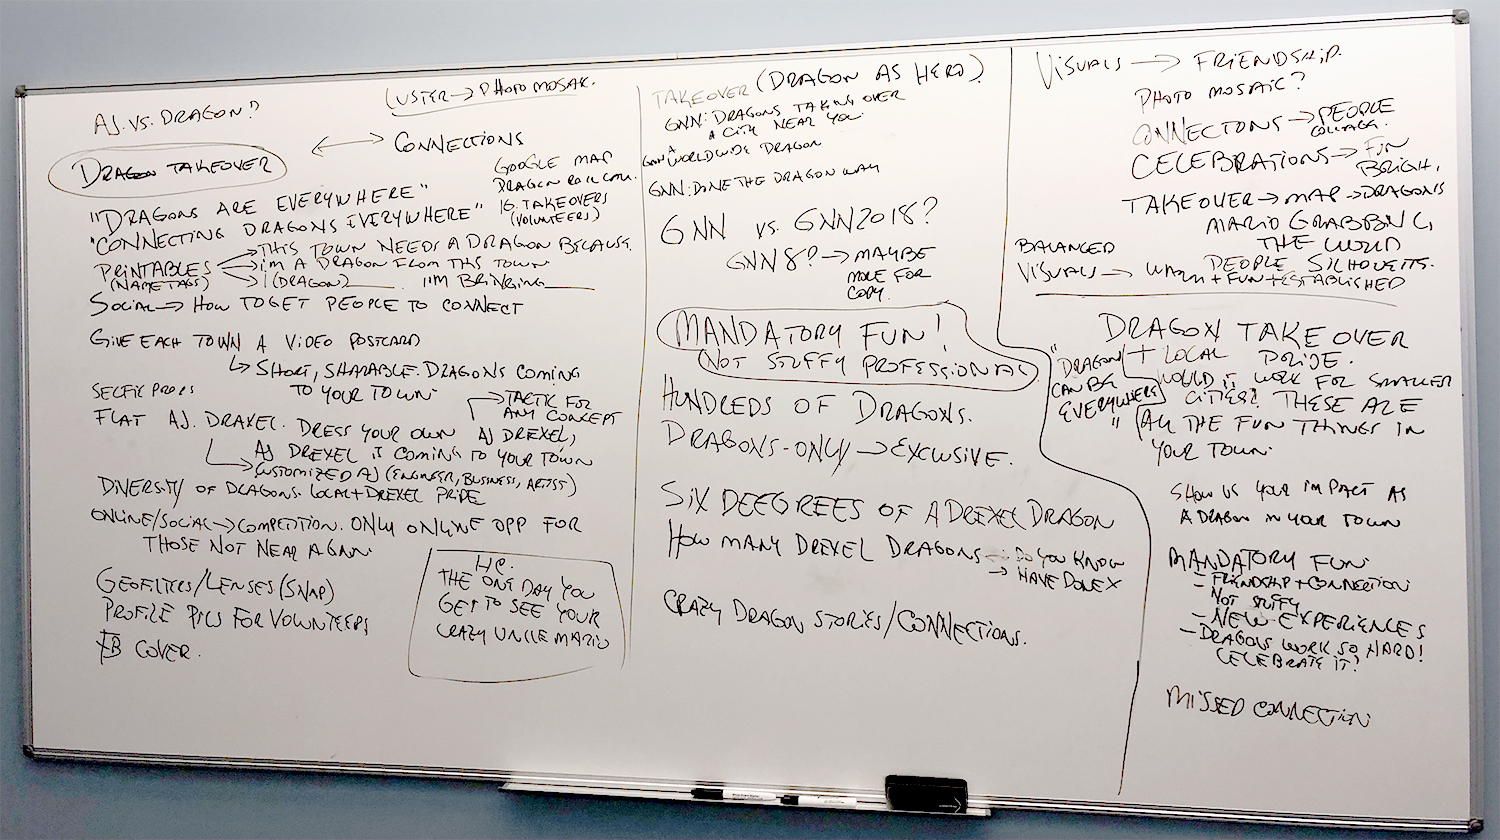 AJ. VS. DRAGON?
CLUSTER → PHOTO MOSAIC.
DRAGON TAKEOVER
CONNECTIONS
GOOGLE MAP
DRAGON ROLL CALL.
IG. TAKEOVERS
(VOLUNTEERS)
"DRAGONS ARE EVERYWHERE"
"CONNECTING DRAGONS EVERYWHERE"
PRINTABLES
(NAMETAGS)
→ THIS TOWN NEEDS A DRAGON BECAUSE
→ I'M A DRAGON FROM THIS TOWN
→ I (DRAGON)____ I'M BRINGING____
SOCIAL → HOW TO GET PEOPLE TO CONNECT
GIVE EACH TOWN A VIDEO POSTCARD
↳ SHORT, SHARABLE. DRAGONS COMING
TO YOUR TOWN.
SELFIE PROPS
→ TACTIC FOR
ANY CONCEPT
FLAT AJ. DRAXEL. DRESS YOUR OWN AJ DREXEL,
AJ DREXEL IS COMING TO YOUR TOWN
→ CUSTOMIZED AJ (ENGINEER, BUSINESS, ARTIST)
DIVERSITY OF DRAGONS. LOCAL + DREXEL PRIDE
ONLINE/SOCIAL → COMPETITION. ONLY ONLINE OPP FOR
THOSE NOT NEAR A GNN.
GEOFILTERS/LENSES (SNAP)
PROFILE PICS FOR VOLUNTEERS
FB COVER.
THE ONE DAY YOU
GET TO SEE YOUR
CRAZY UNCLE MARIO
TAKEOVER (DRAGON AS HERO)
GNN: DRAGONS TAKING OVER
A CITY NEAR YOU.
GNN A WORLDWIDE DRAGON
GNN: DONE THE DRAGON WAY
GNN VS. GNN2018?
GNN8? → MAYBE
MORE FOR
COPY.
MANDATORY FUN!
NOT STUFFY PROFESSIONAL
HUNDREDS OF DRAGONS.
DRAGONS-ONLY → EXCLUSIVE.
SIX DEEGREES OF A DREXEL DRAGON
HOW MANY DREXEL DRAGONS → DO YOU KNOW
→ HAVE DONE X
CRAZY DRAGON STORIES/CONNECTIONS.
VISUALS → FRIENDSHIP.
PHOTO MOSAIC?
CONNECTONS → PEOPLE
COLLAGE.
CELEBRATIONS → FUN
BRIGHT,
TAKEOVER → MAP → DRAGONS
MARIO GRABBING
THE WORLD
PEOPLE SILHOUETTS.
BALANCED
VISUALS → WARM + FUN + ESTABLISHED
DRAGON TAKE OVER
+ LOCAL PRIDE.
"DRAGON
CAN BE
EVERYWHERE"
WOULD IT WORK FOR SMALLER
CITIES? THESE ARE
ALL THE FUN THINGS IN
YOUR TOWN.
SHOW US YOUR IMPACT AS
A DRAGON IN YOUR TOWN
MANDATORY FUN:
- FRIENDSHIP + CONNECTION
NOT STUFFY
- NEW EXPERIENCES
- DRAGONS WORK SO HARD!
CELEBRATE IT!
MISSED CONNECTION